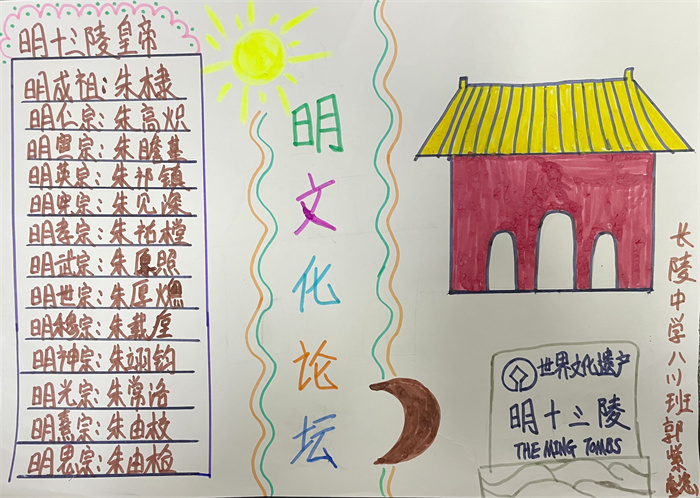 明十三陵皇帝
明成祖：朱棣
明仁宗：朱高炽
明宣宗：朱瞻基
明英宗：朱祁镇
明宪宗：朱见深
明孝宗：朱祐樘
明武宗：朱厚照
明世宗：朱厚熜
明穆宗：朱载垕
明神宗：朱翊钧
明光宗：朱常洛
明熹宗：朱由校
明思宗：朱由检
明文化论坛
世界文化遗产
明十三陵
THE MING TOMBS
长陵中学八川班郭紫